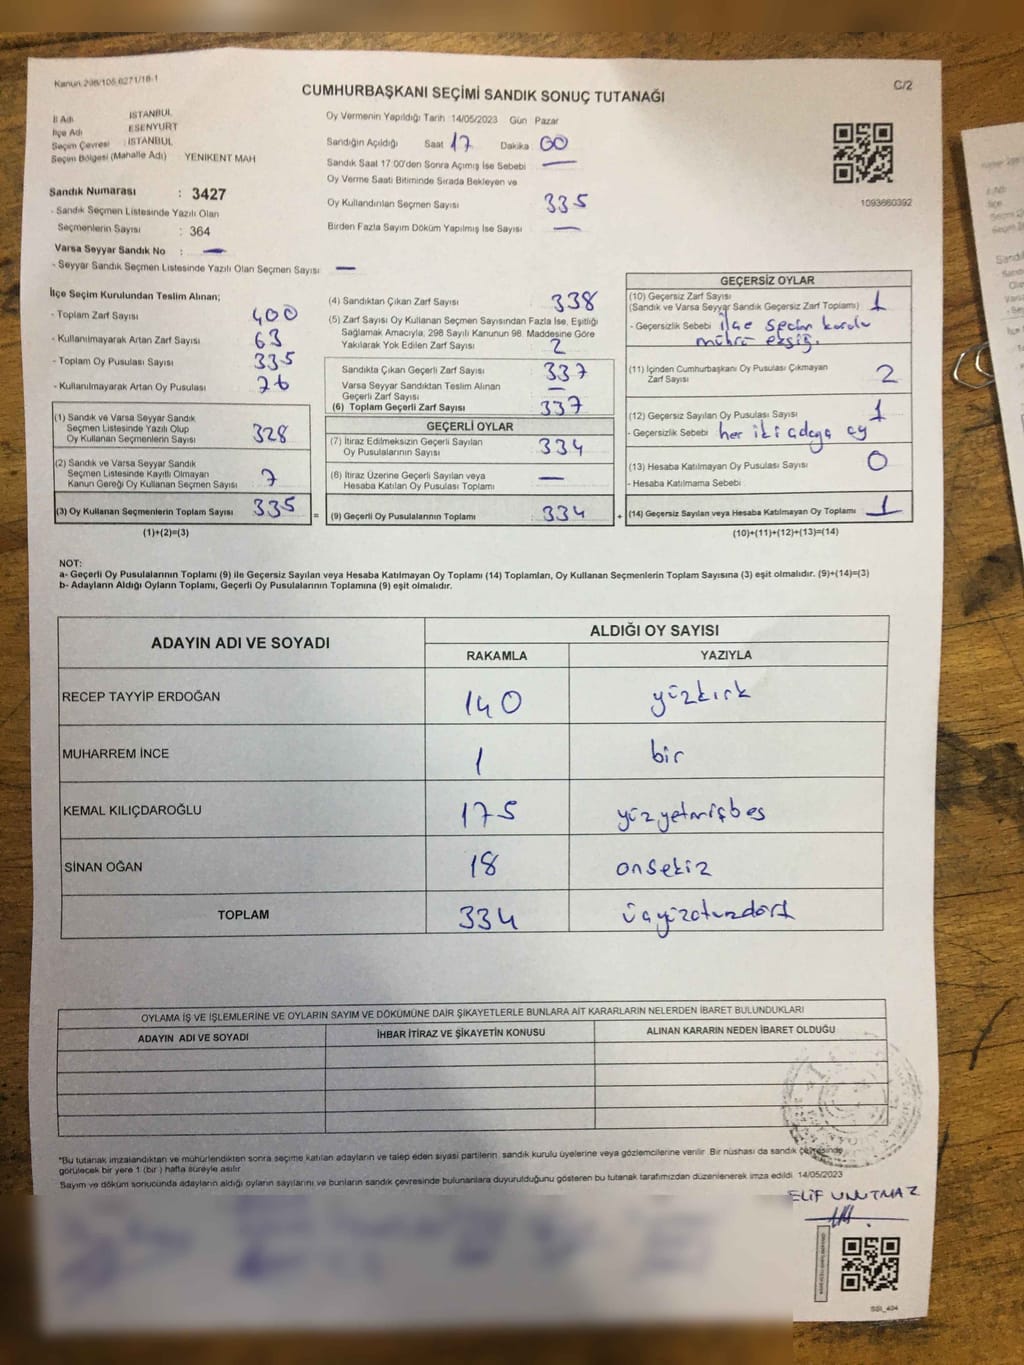 Kanun 298/105 6271/18-1
C/2
CUMHURBAŞKANI SEÇİMİ SANDIK SONUÇ TUTANAĞI
İl Adı İSTANBUL
İlçe Adı ESENYURT
Seçim Çevresi : İSTANBUL
Seçim Bölgesi (Mahalle Adı) YENİKENT MAH
Sandık Numarası : 3427
- Sandık Seçmen Listesinde Yazılı Olan
Seçmenlerin Sayısı : 364
Varsa Seyyar Sandık No : —
- Seyyar Sandık Seçmen Listesinde Yazılı Olan Seçmen Sayısı —
Oy Vermenin Yapıldığı Tarih 14/05/2023 Gün Pazar
Sandığın Açıldığı Saat 17 Dakika 00
Sandık Saat 17:00'den Sonra Açımış İse Sebebi —
Oy Verme Saati Bitiminde Sırada Bekleyen ve
Oy Kullandırılan Seçmen Sayısı 335
Birden Fazla Sayım Döküm Yapılmış İse Sayısı —
1093660392
İlçe Seçim Kurulundan Teslim Alınan;
- Toplam Zarf Sayısı 400
- Kullanılmayarak Artan Zarf Sayısı 63
- Toplam Oy Pusulası Sayısı 335
- Kullanılmayarak Artan Oy Pusulası 76
(1) Sandık ve Varsa Seyyar Sandık
Seçmen Listesinde Yazılı Olup
Oy Kullanan Seçmenlerin Sayısı 328
(2) Sandık ve Varsa Seyyar Sandık
Seçmen Listesinde Kayıtlı Olmayan
Kanun Gereği Oy Kullanan Seçmen Sayısı 7
(3) Oy Kullanan Seçmenlerin Toplam Sayısı 335 =
(1)+(2)=(3)
(4) Sandıktan Çıkan Zarf Sayısı 338
(5) Zarf Sayısı Oy Kullanan Seçmen Sayısından Fazla İse, Eşitliği
Sağlamak Amacıyla, 298 Sayılı Kanunun 98. Maddesine Göre
Yakılarak Yok Edilen Zarf Sayısı 2
Sandıkta Çıkan Geçerli Zarf Sayısı 337
Varsa Seyyar Sandıktan Teslim Alınan
Geçerli Zarf Sayısı —
(6) Toplam Geçerli Zarf Sayısı 337
GEÇERLİ OYLAR
(7) İtiraz Edilmeksizin Geçerli Sayılan
Oy Pusulalarının Sayısı 334
(8) İtiraz Üzerine Geçerli Sayılan veya
Hesaba Katılan Oy Pusulası Toplamı —
(9) Geçerli Oy Pusulalarının Toplamı 334 +
GEÇERSİZ OYLAR
(10) Geçersiz Zarf Sayısı
(Sandık ve Varsa Seyyar Sandık Geçersiz Zarf Toplamı) 1
- Geçersizlik Sebebi ilçe seçim kurulu
mührü eksiğ.
(11) İçinden Cumhurbaşkanı Oy Pusulası Çıkmayan
Zarf Sayısı 2
(12) Geçersiz Sayılan Oy Pusulası Sayısı 1
- Geçersizlik Sebebi her iki adaya oy
(13) Hesaba Katılmayan Oy Pusulası Sayısı 0
- Hesaba Katılmama Sebebi
(14) Geçersiz Sayılan veya Hesaba Katılmayan Oy Toplamı 1
(10)+(11)+(12)+(13)=(14)
NOT:
a- Geçerli Oy Pusulalarının Toplamı (9) ile Geçersiz Sayılan veya Hesaba Katılmayan Oy Toplamı (14) Toplamları, Oy Kullanan Seçmenlerin Toplam Sayısına (3) eşit olmalıdır. (9)+(14)=(3)
b- Adayların Aldığı Oyların Toplamı, Geçerli Oy Pusulalarının Toplamına (9) eşit olmalıdır.
ADAYIN ADI VE SOYADI ALDIĞI OY SAYISI
RAKAMLA YAZIYLA
RECEP TAYYİP ERDOĞAN 140 yüzkırk
MUHARREM İNCE 1 bir
KEMAL KILIÇDAROĞLU 175 yüzyetmişbeş
SİNAN OĞAN 18 onsekiz
TOPLAM 334 üçyüzotuzdört
OYLAMA İŞ VE İŞLEMLERİNE VE OYLARIN SAYIM VE DÖKÜMÜNE DAİR ŞİKAYETLERLE BUNLARA AİT KARARLARIN NELERDEN İBARET BULUNDUKLARI
ADAYIN ADI VE SOYADI İHBAR İTİRAZ VE ŞİKAYETİN KONUSU ALINAN KARARIN NEDEN İBARET OLDUĞU
"Bu tutanak imzalandıktan ve mühürlendikten sonra seçime katılan adayların ve talep eden siyasi partilerin sandık kurulu üyelerine veya gözlemcilerine verilir. Bir nüshası da sandık çevresinde
görülecek bir yere 1 (bir) hafta süreyle asılır.
Sayım ve döküm sonucunda adayların aldığı oyların sayılarını ve bunların sandık çevresinde bulunanlara duyurulduğunu gösteren bu tutanak tarafımızdan düzenlenerek imza edildi. 14/05/2023
ELİF UNUTMAZ
SSI_404